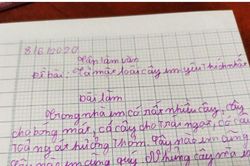 8/6/2020
Tập làm văn
Đề bài: Tả một loài cây em yêu thích nhất
Bài làm
Trong nhà em có rất nhiều cây, cây
cho bóng mát, có cây cho trái ngọt, có cây
toả ngát hương thơm. Cây nào em cũng
cây nào em cũng quý. Nhưng cây mà